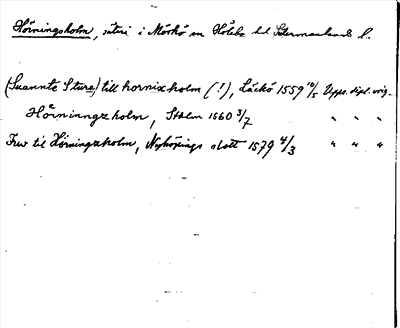 Hörningsholm, säteri i Mörkö sn Hölebo hd Södermanlands l.
(Suante Sture) till hornixholm (!), Läckö 1559 10/5 Upps. dipl. orig.
Hörninngzholm, Sthlm 1660 3/7 " " "
Fru til Hörningzholm, Nyköpings slott 1579 4/3 " " "